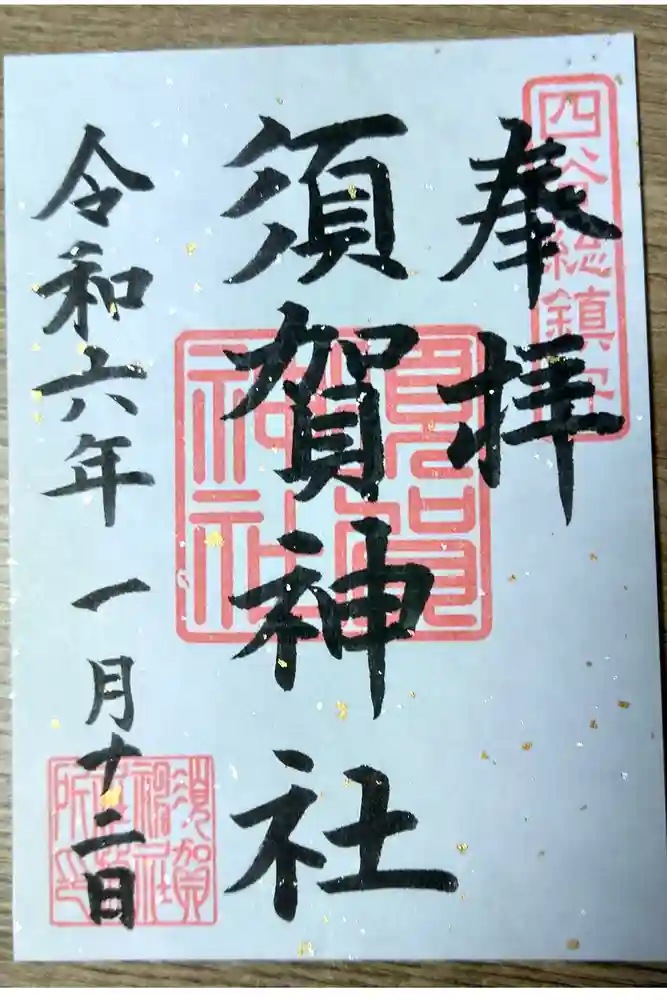 四谷総鎮守
奉拝
須賀神社
須賀神社
令和六年一月十二日
須賀神社